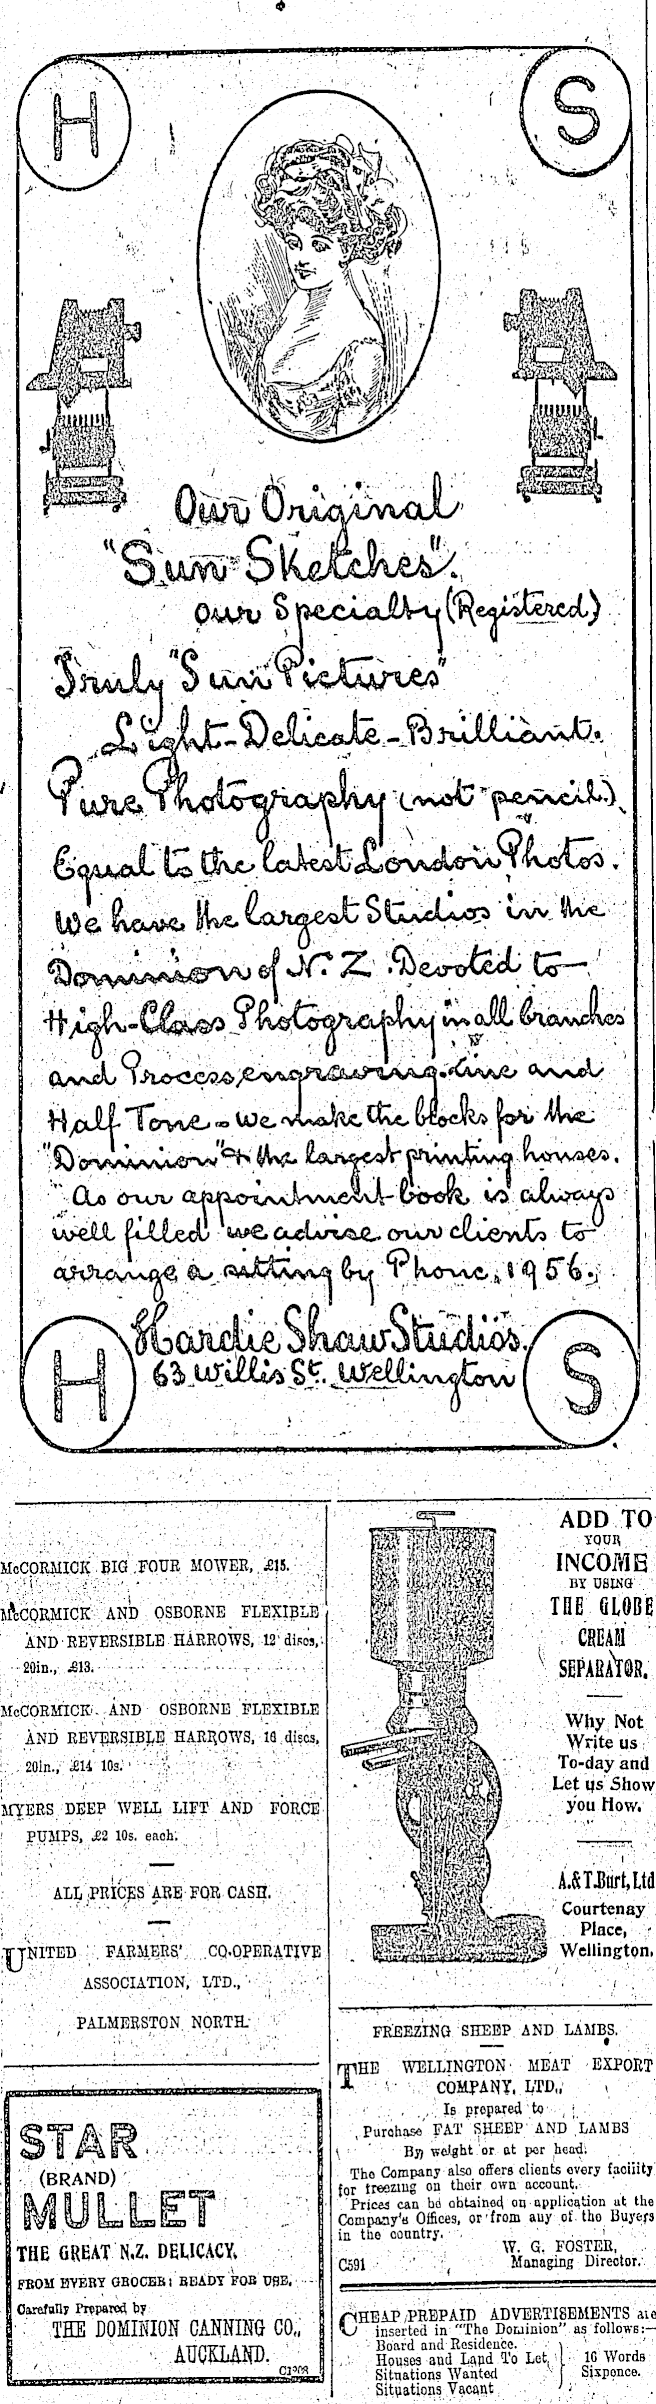 H
S
Our Original
"Sun Sketches".
our Specialty (Registered)
Truly "Sun Pictures"
Light-Delicate-Brilliant.
Pure Photography (not pencil).
Equal to the latest London Photos.
We have the largest Studios in the
Dominion of N. Z. Devoted to
High-Class Photography in all branches
and Process engraving. Line and
Half Tone - we make the blocks for the
"Dominion" & the largest printing houses.
As our appointment book is always
well filled we advise our clients to
arrange a sitting by Phone, 1956.
Hardie Shaw Studios.
63 Willis St. Wellington
H
S
McCORMICK BIG FOUR MOWER, £15.
McCORMICK AND OSBORNE FLEXIBLE
AND REVERSIBLE HARROWS, 12 discs,
20in., £13.
McCORMICK AND OSBORNE FLEXIBLE
AND REVERSIBLE HARROWS, 16 discs,
20in., £14 10s.
MYERS DEEP WELL LIFT AND FORCE
PUMPS, £2 10s. each.
ALL PRICES ARE FOR CASH.
UNITED FARMERS' CO-OPERATIVE
ASSOCIATION, LTD.,
PALMERSTON NORTH.
STAR
(BRAND)
MULLET
THE GREAT N.Z. DELICACY.
FROM EVERY GROCER; READY FOR USE.
Carefully Prepared by
THE DOMINION CANNING CO.,
AUCKLAND.
ADD TO
YOUR
INCOME
BY USING
THE GLOBE
CREAM
SEPARATOR.
Why Not
Write us
To-day and
Let us Show
you How.
A. & T. Burt, Ltd
Courtenay
Place,
Wellington.
FREEZING SHEEP AND LAMBS.
THE WELLINGTON MEAT EXPORT
COMPANY, LTD.,
Is prepared to
Purchase FAT SHEEP AND LAMBS
By weight or at per head.
The Company also offers clients every facility
for freezing on their own account.
Prices can be obtained on application at the
Company's Offices, or from any of the Buyers
in the country.
W. G. FOSTER,
C591 Managing Director.
CHEAP PREPAID ADVERTISEMENTS are
inserted in "The Dominion" as follows:—
Board and Residence.
Houses and Land To Let, 16 Words
Situations Wanted Sixpence.
Situations Vacant